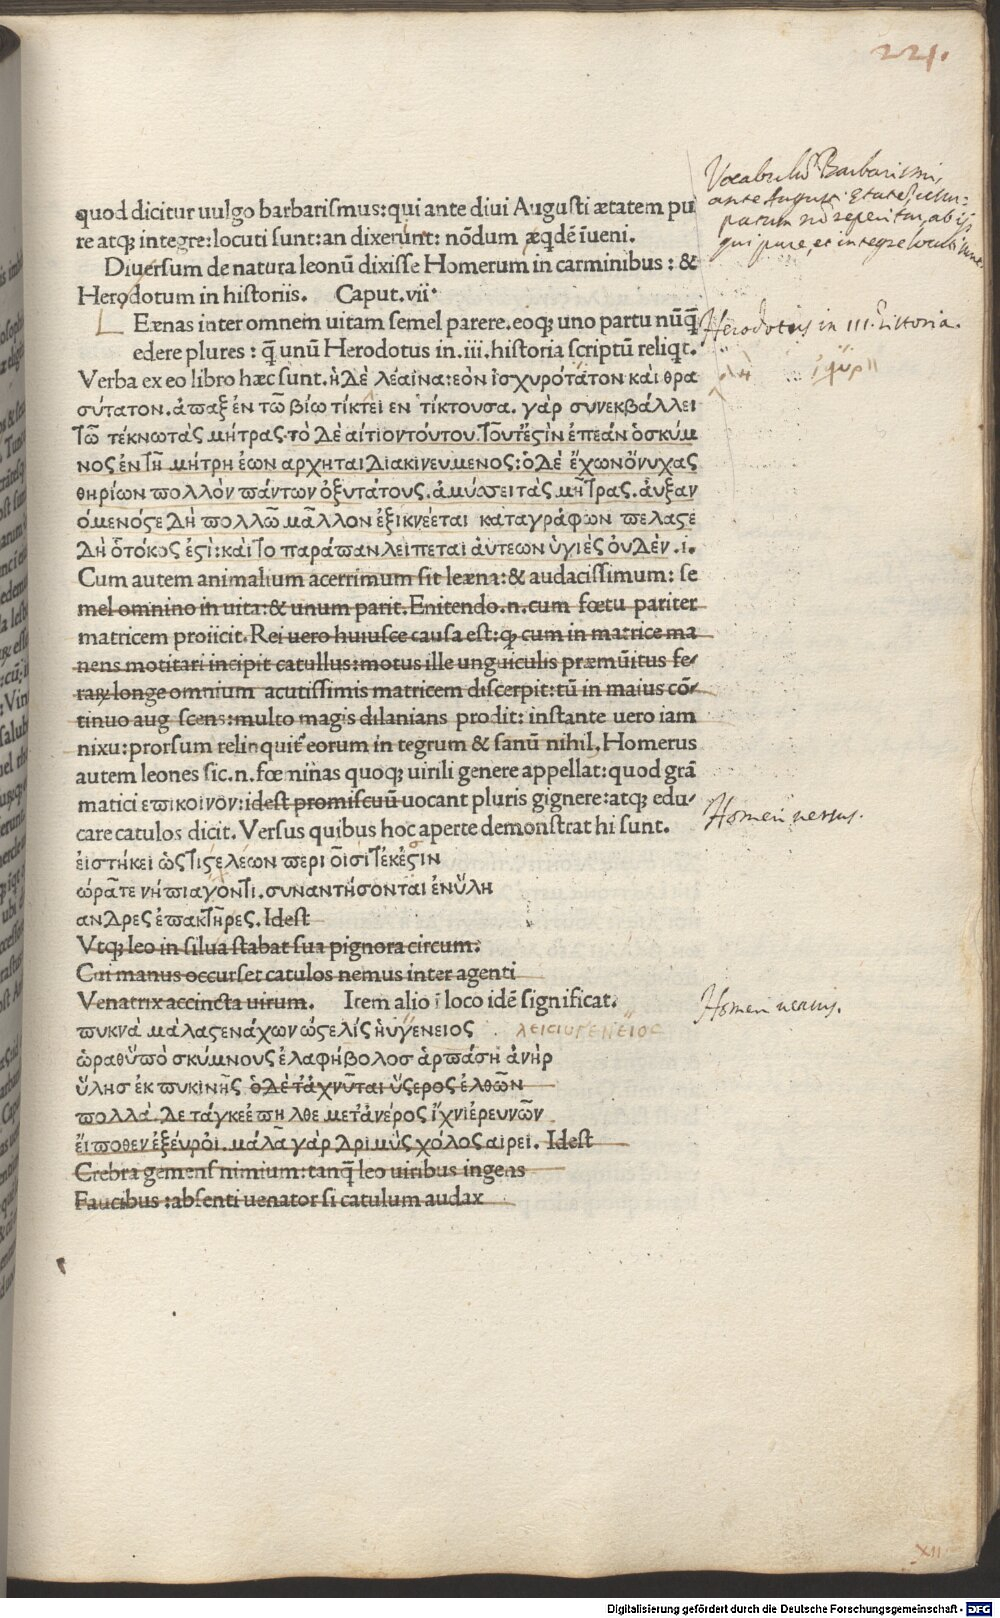 221.
quod dicitur uulgo barbarismus: qui ante diui Augusti ætatem pu
re atq; integre: locuti sunt: an dixerunt: nōdum æqdē īueni.
Diuersum de natura leonū dixisse Homerum in carminibus: &
Herodotum in historiis. Caput. vii.
L Eænas inter omnem uitam semel parere. eoq; uno partu nūq̄
edere plures: q̄ unū Herodotus in. iii. historia scriptū reliqt.
Verba ex eo libro hæc sunt. ἡ δὲ λέαινα: εὸν ἰσχυρότατον καὶ θρα
σύτατον. ἁπαξ ἐν τῶ βίω τίκτει εν τίκτουσα. γάρ συνεκβάλλει
τῶ τέκνω τὰς μήτρας. τὸ δὲ αἰτιον τόυτου. τοῦτ ἐςὶν ἐπεάν ὁ σκύμ
νος ἐν τῆ μήτρη ἐων αρχηται διακινευμενος: ὁ δὲ ἔχων ὄνυχας
θηρίων πολλὸν πάντων ὀξυτάτους. ἀμύσσει τὰς μήτρας. ἀυξαν
όμενός ε δὴ πολλῶ μᾶλλον ἐξικνέεται καταγράφων πελας ε
δὴ ὁ τόκος ἐςὶ: καὶ τὸ παράπαν λείπεται ἀυτεων ὑγιὲς ὀυδέν. i.
Cum autem animalium acerrimum sit leæna: & audacissimum: se
mel omnino in uita: & unum parit. Enitendo. n. cum fœtu pariter
matricem proiicit. Rei uero huiusce causa est: q; cum in matrice ma
nens motitari incipit catullus: motus ille unguiculis præmūitus fe-
raꝝ longe omnium acutissimis matricem discerpit: tū in maius cō-
tinuo aug scens: multo magis dilanians prodit: instante uero iam
nixu: prorsum relinquit eorum in tegrum & sanū nihil. Homerus
autem leones sic. n. fœminas quoq; uirili genere appellat: quod grā
matici επικοινον: idest promiscuū uocant pluris gignere: atq; edu-
care catulos dicit. Versus quibus hoc aperte demonstrat hi sunt.
εἱστήκει ὡς τίς ε λέων περι οἷσι τέκεςιν
ὡρᾶτε νήπι αγοντι. συναντήσονται ἐν ὕλη
ανδρες ἐπακτῆρες. Idest
Vtq; leo in silua stabat sua pignora circum:
Cui manus occurset catulos nemus inter agenti
Venatrix accincta uirum. Item alio ī loco idē significat.
πυκνὰ μάλα ςενάχων ὥςε λὶς ἠυγένειος
ὡραθ ὑπὸ σκύμνους ἐλαφηβολοσ ἁρπάση ἀνὴρ
ὕλησ ἐκ πυκινῆς ὁ δέ τ ἄχνυται ὕςερος ἐλθῶν
πολλὰ. δε τ άγκε ἐπῆλθε μετ ἀνέρος ἴχνι ἐρευνῶν
ἔι ποθεν ἐξέυροι. μάλα γάρ δριμὺς χόλος αιρει. Idest
Crebra gemens nimium: tanq̄ leo uiribus ingens
Faucibus: absenti uenator si catulum audax
Vocabulū Barbarismi,
ante Augusti Etatē,
parum nō reperitur, ab ijs
qui pure, et integre locuti sunt.
Herodotus in III. Historia.
Homeri uersus.
Homeri uersus.
XII
Digitalisierung gefördert durch die Deutsche Forschungsgemeinschaft - DFG